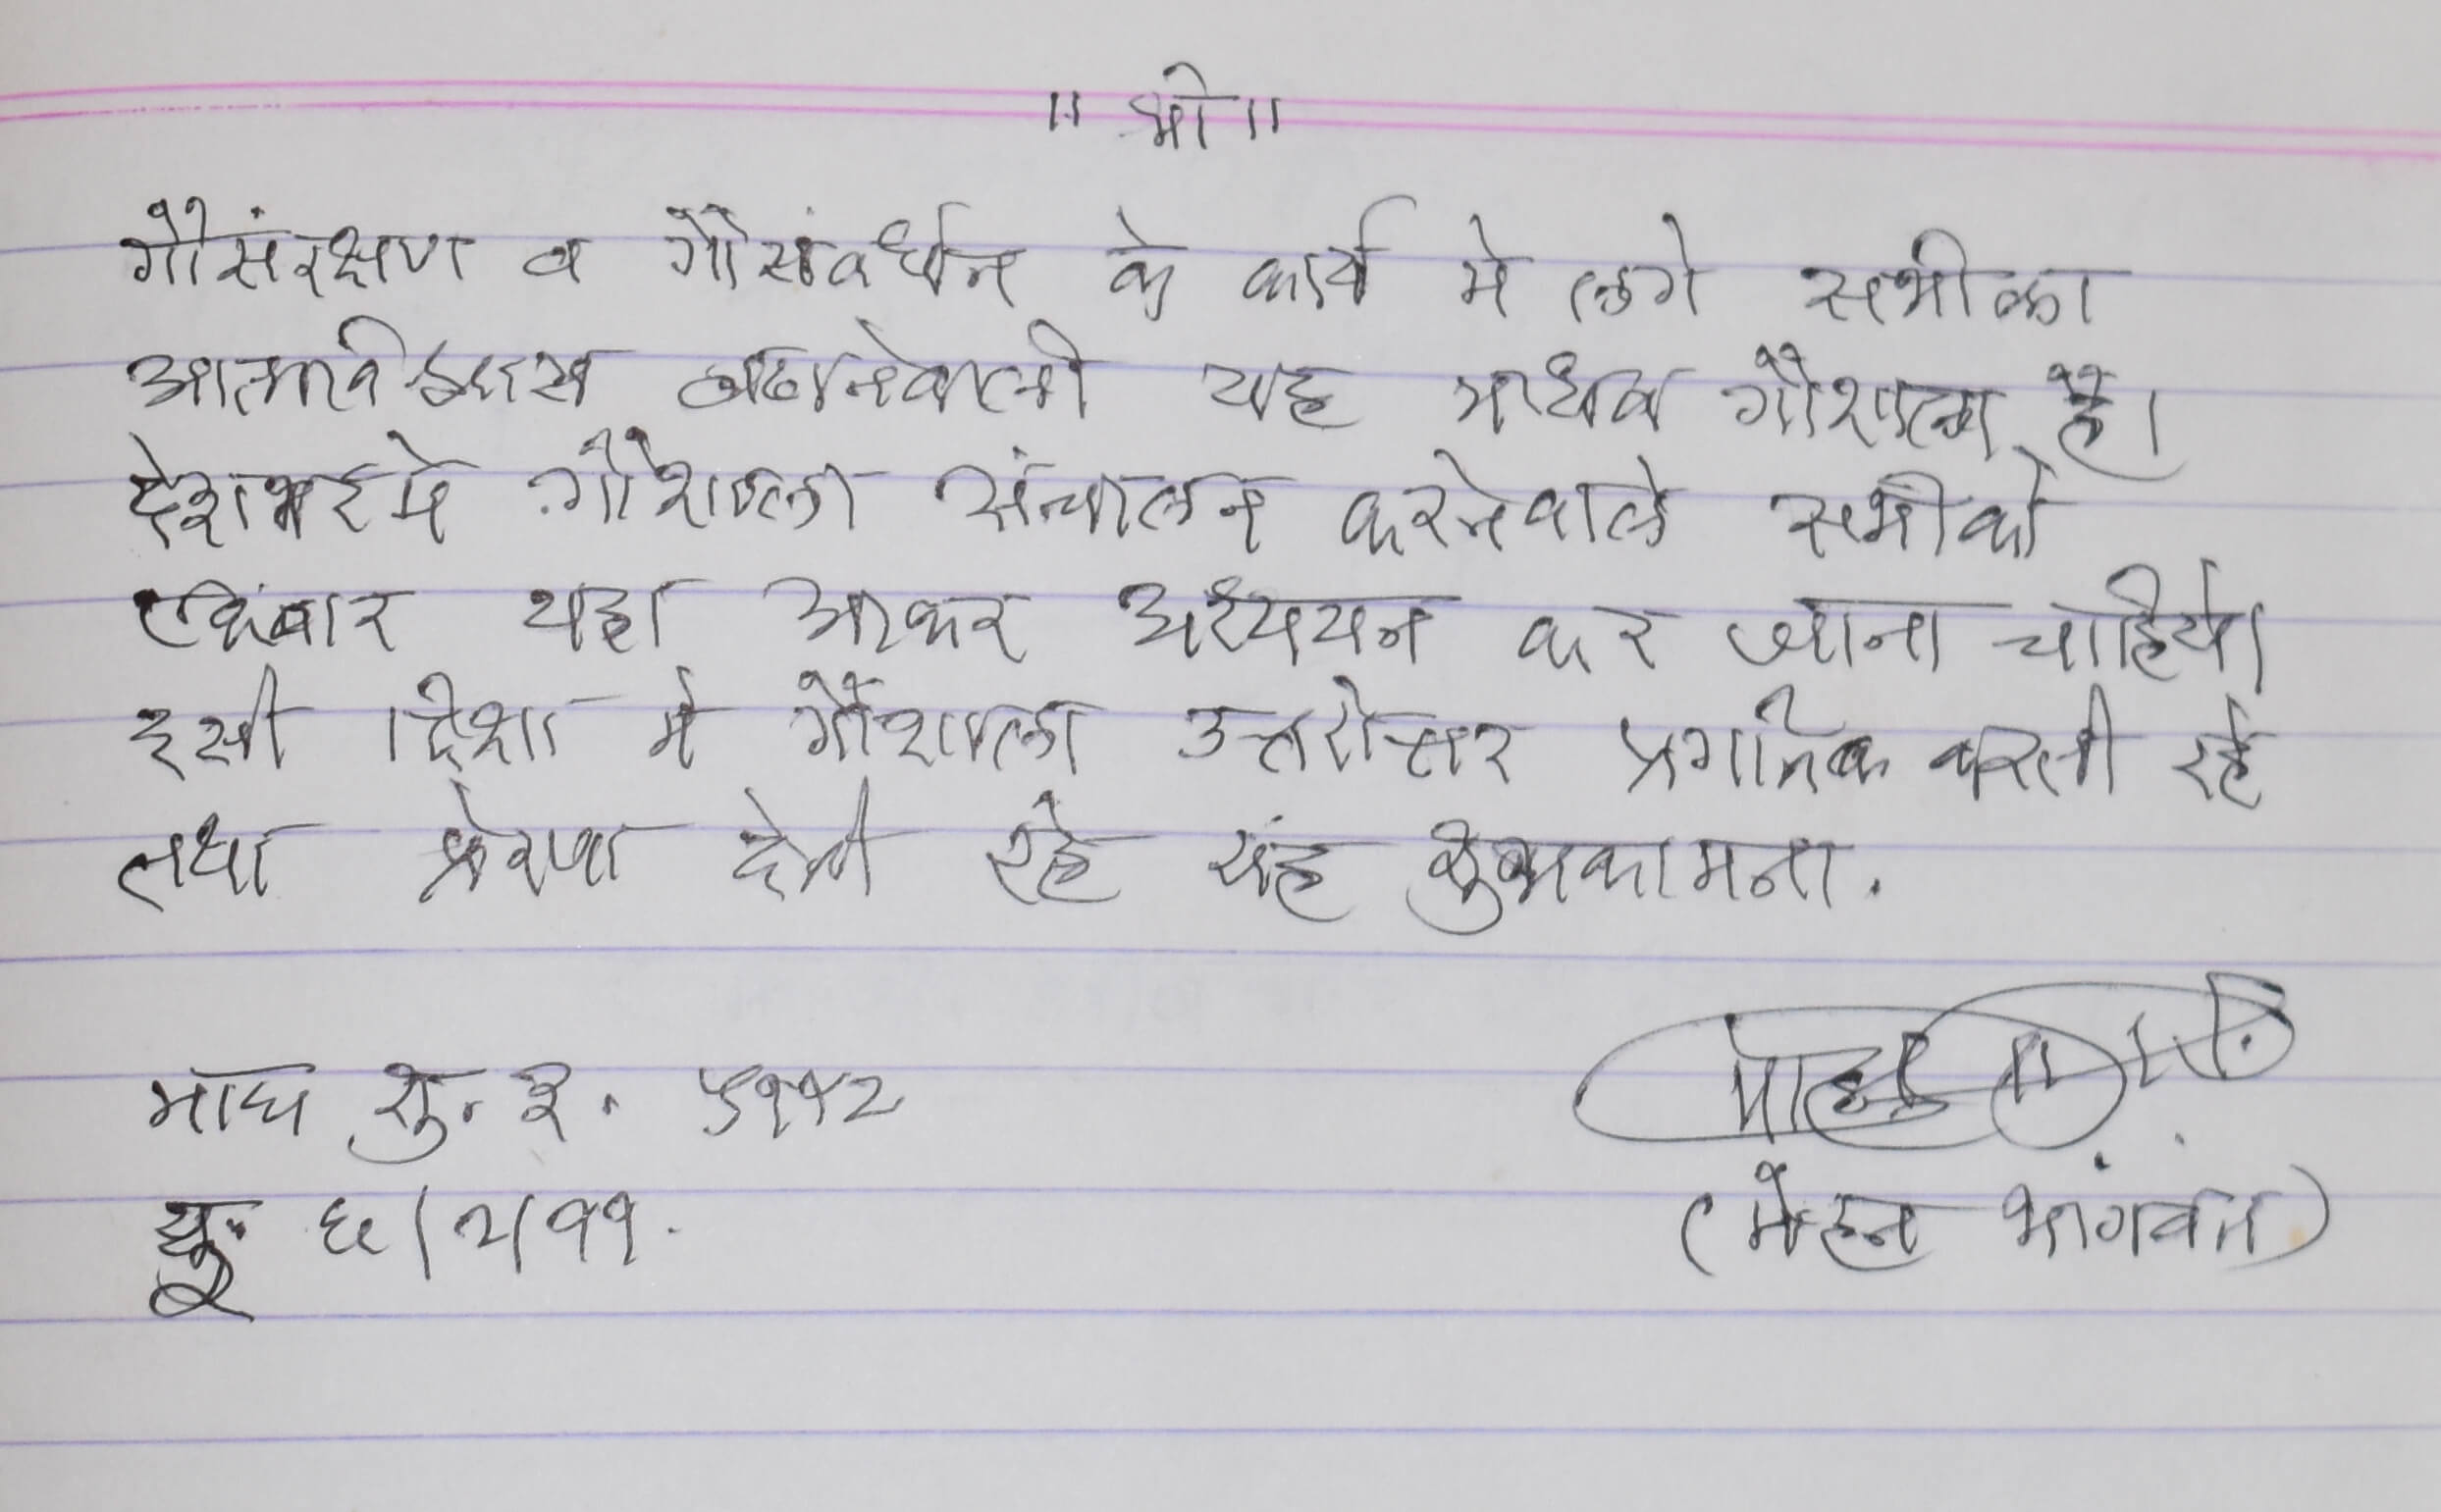 ॥ श्री ॥
गौसंरक्षण व गौसंवर्धन के कार्य मे लगे सभीका
आत्मविश्वास बढानेवाली यह गौशाला है।
देशभरमे गौशाला संचालन करनेवाले सभीको
एकबार यहा आकर अध्ययन कर जाना चाहिये।
इसी दिशा मे गौशाला उत्तरोत्तर प्रगति करती रहे
तथा प्रेरणा देती रहे यह शुभकामना.
माघ शु. ३. ५११२
६/२/११.
(मोहन भागवत)